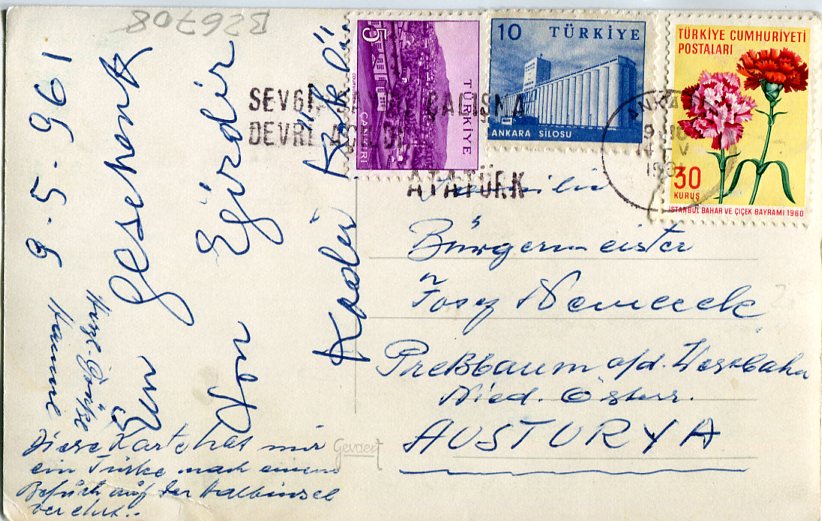 B26708
5
TÜRKİYE
CANKIRI
10 TÜRKİYE
ANKARA SİLOSU
TÜRKİYE CUMHURİYETİ
POSTALARI
30
KURUŞ
İSTANBUL BAHAR VE ÇİÇEK BAYRAMI 1960
SEVGİ ÇALIŞMA
DEVRİ AÇILDI
ATATÜRK
ANKARA
9-5-961
Ein Geschenk
Von Eğirdir
Kadir
Herzl. Grüße
Hanne
Familie
Bürgermeister
Josef
Preßbaum a/d. Westbahn
Nied. Österr.
AUSTURYA
Diese Karte hat mir
ein Türke nach einem
Besuch auf der Halbinsel
verehrt..
Gevaert